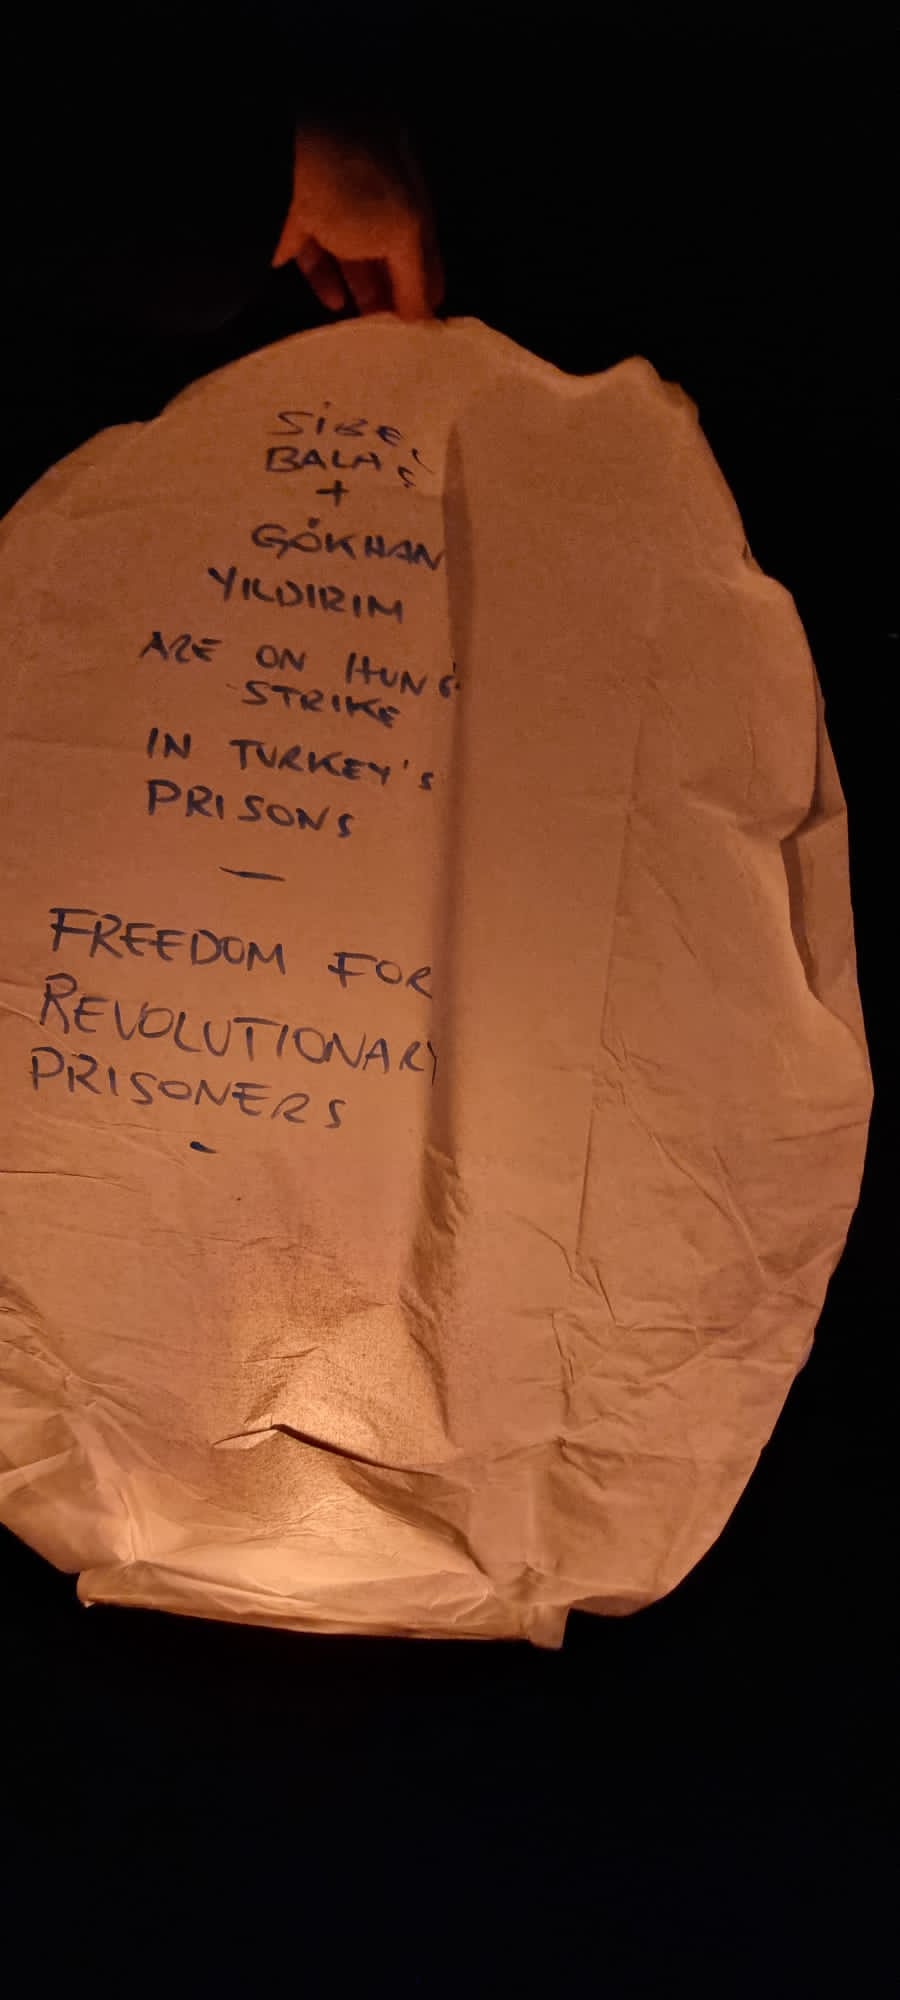 SİBEL
BALAÇ
+
GÖKHAN
YILDIRIM
ARE ON HUNG
STRIKE
IN TURKEY'S
PRISONS
—
FREEDOM FOR
REVOLUTIONARY
PRISONERS